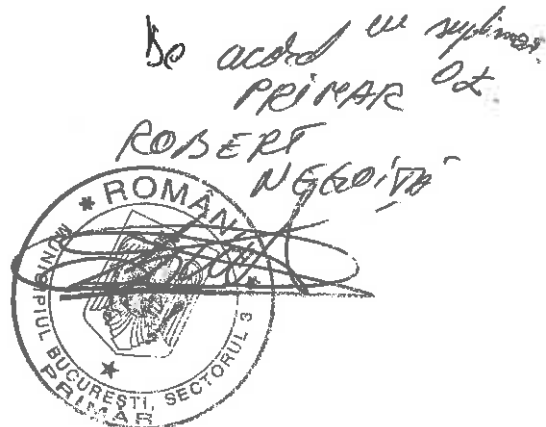 De acord cu
PRIMAR
ROBERT
NEGOIȚĂ
* ROMÂNIA *
MUNICIPIUL BUCUREȘTI, SECTORUL 3
PRIMAR